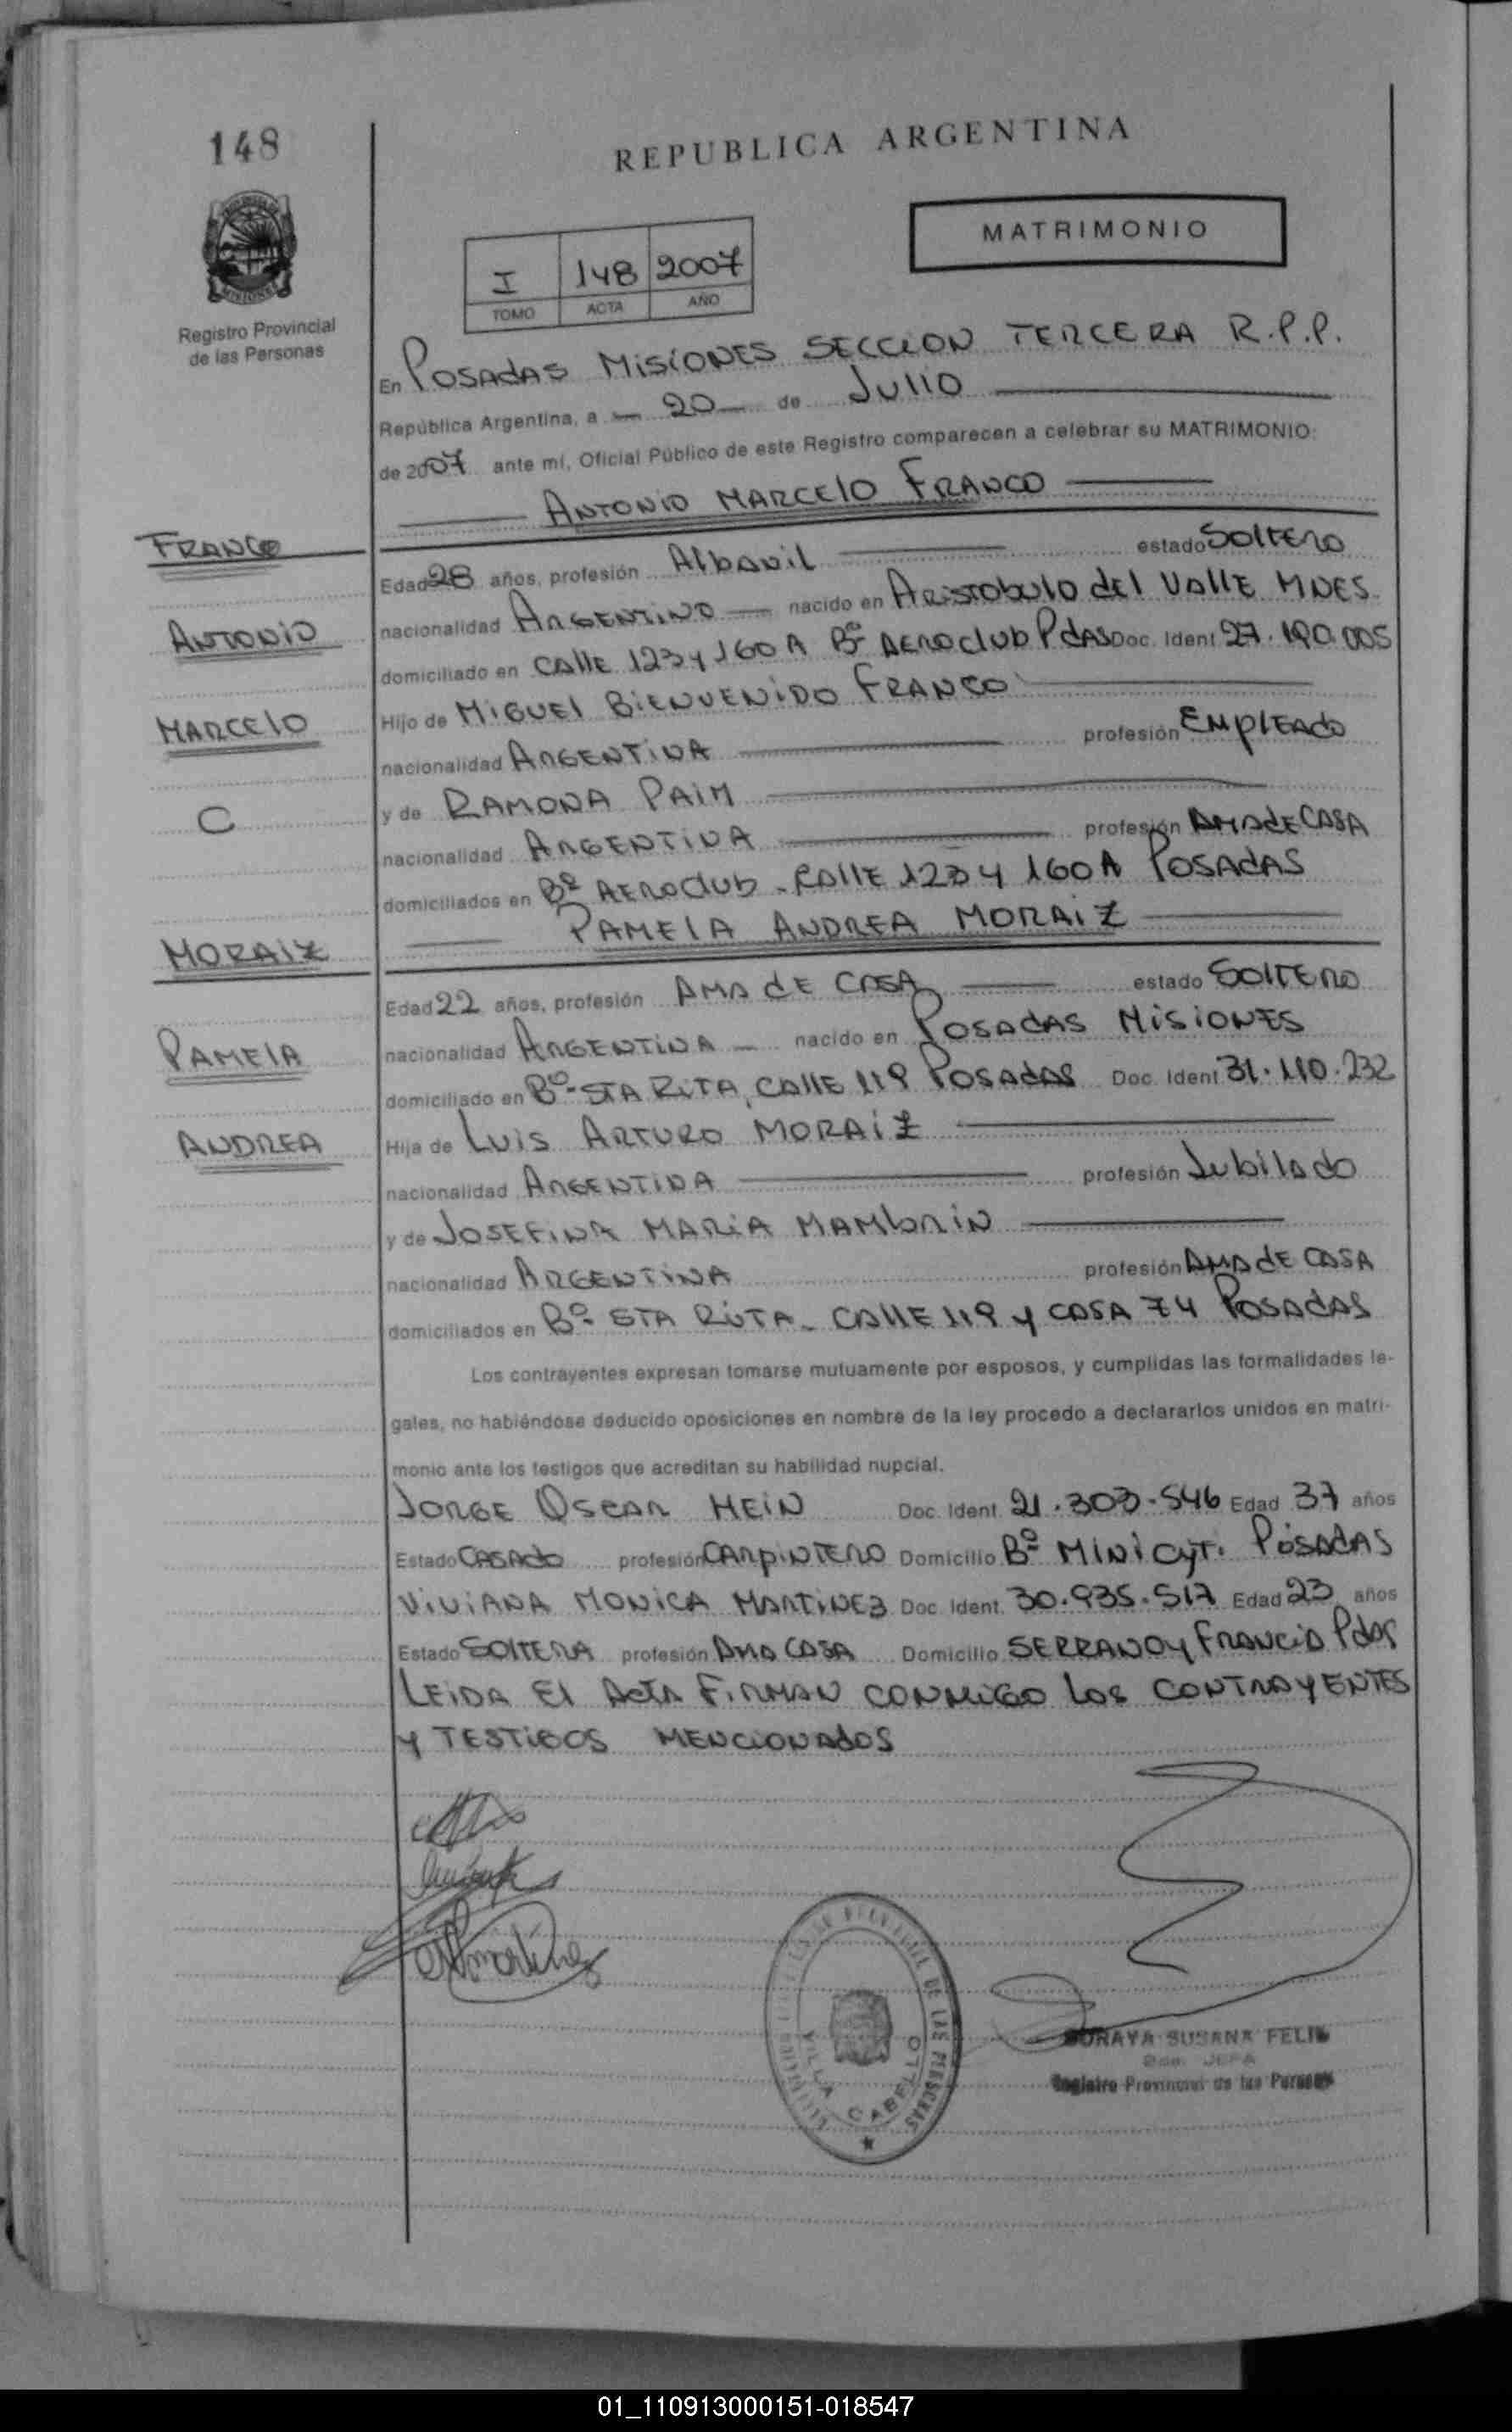 148
REPUBLICA ARGENTINA
MATRIMONIO
I 148 2007
TOMO ACTA AÑO
MISIONES
Registro Provincial
de las Personas
En POSADAS MISIONES SECCION TERCERA R.P.P.
República Argentina, a 20 de JULIO
de 2007 ante mí, Oficial Público de este Registro comparecen a celebrar su MATRIMONIO:
ANTONIO MARCELO FRANCO
FRANCO
Edad 28 años, profesión AlbAnil estado SOLTERO
nacionalidad ARGENTINO nacido en ARISTObulO dEl VALLE MNES.
ANTONIO
domiciliado en CALLE 123 y 160 A Bº AEROclub PdAS Doc. Ident 27.190.005
Hijo de MIGUEL BIENVENIDO FRANCO
MARCELO
nacionalidad ARGENTINA profesión EMPLEADO
y de RAMONA PAIM
C
nacionalidad ARGENTINA profesión AMA dE CASA
domiciliados en Bº AEROclub - CALLE 123 y 160 A POSADAS
PAMELA ANDREA MORAIZ
MORAIZ
Edad 22 años, profesión AMA dE CASA estado SOLTERO
nacionalidad ARGENTINA nacido en POSADAS MISIONES
PAMELA
domiciliado en Bº STA RITA, CALLE 119 POSADAS Doc. Ident 31.110.232
Hija de LUIS ARTURO MORAIZ
ANDREA
nacionalidad ARGENTINA profesión Jubilado
y de JOSEFINA MARIA MAMbRIN
nacionalidad ARGENTINA profesión AMA dE CASA
domiciliados en Bº STA RITA - CALLE 119 y CASA 74 POSADAS
Los contrayentes expresan tomarse mutuamente por esposos, y cumplidas las formalidades le-
gales, no habiéndose deducido oposiciones en nombre de la ley procedo a declararlos unidos en matri-
monio ante los testigos que acreditan su habilidad nupcial.
JORGE OSCAR HEIN Doc. Ident. 21.303.546 Edad 37 años
Estado CASADO profesión CARPINTERO Domicilio Bº MINI CyT. POSADAS
VIVIANA MONICA MARTINEZ Doc. Ident. 30.935.517 Edad 23 años
Estado SOLTERA profesión AMA CASA Domicilio SERRANO y FRANCIA Pdas
LEIDA El ACTA FIRMAN CONMIGO LOS CONTRAYENTES
Y TESTIGOS MENCIONADOS
VILLA CABELLO
SORAYA SUSANA FELIX
JEFA
Registro Provincial de las Personas
01_110913000151-018547